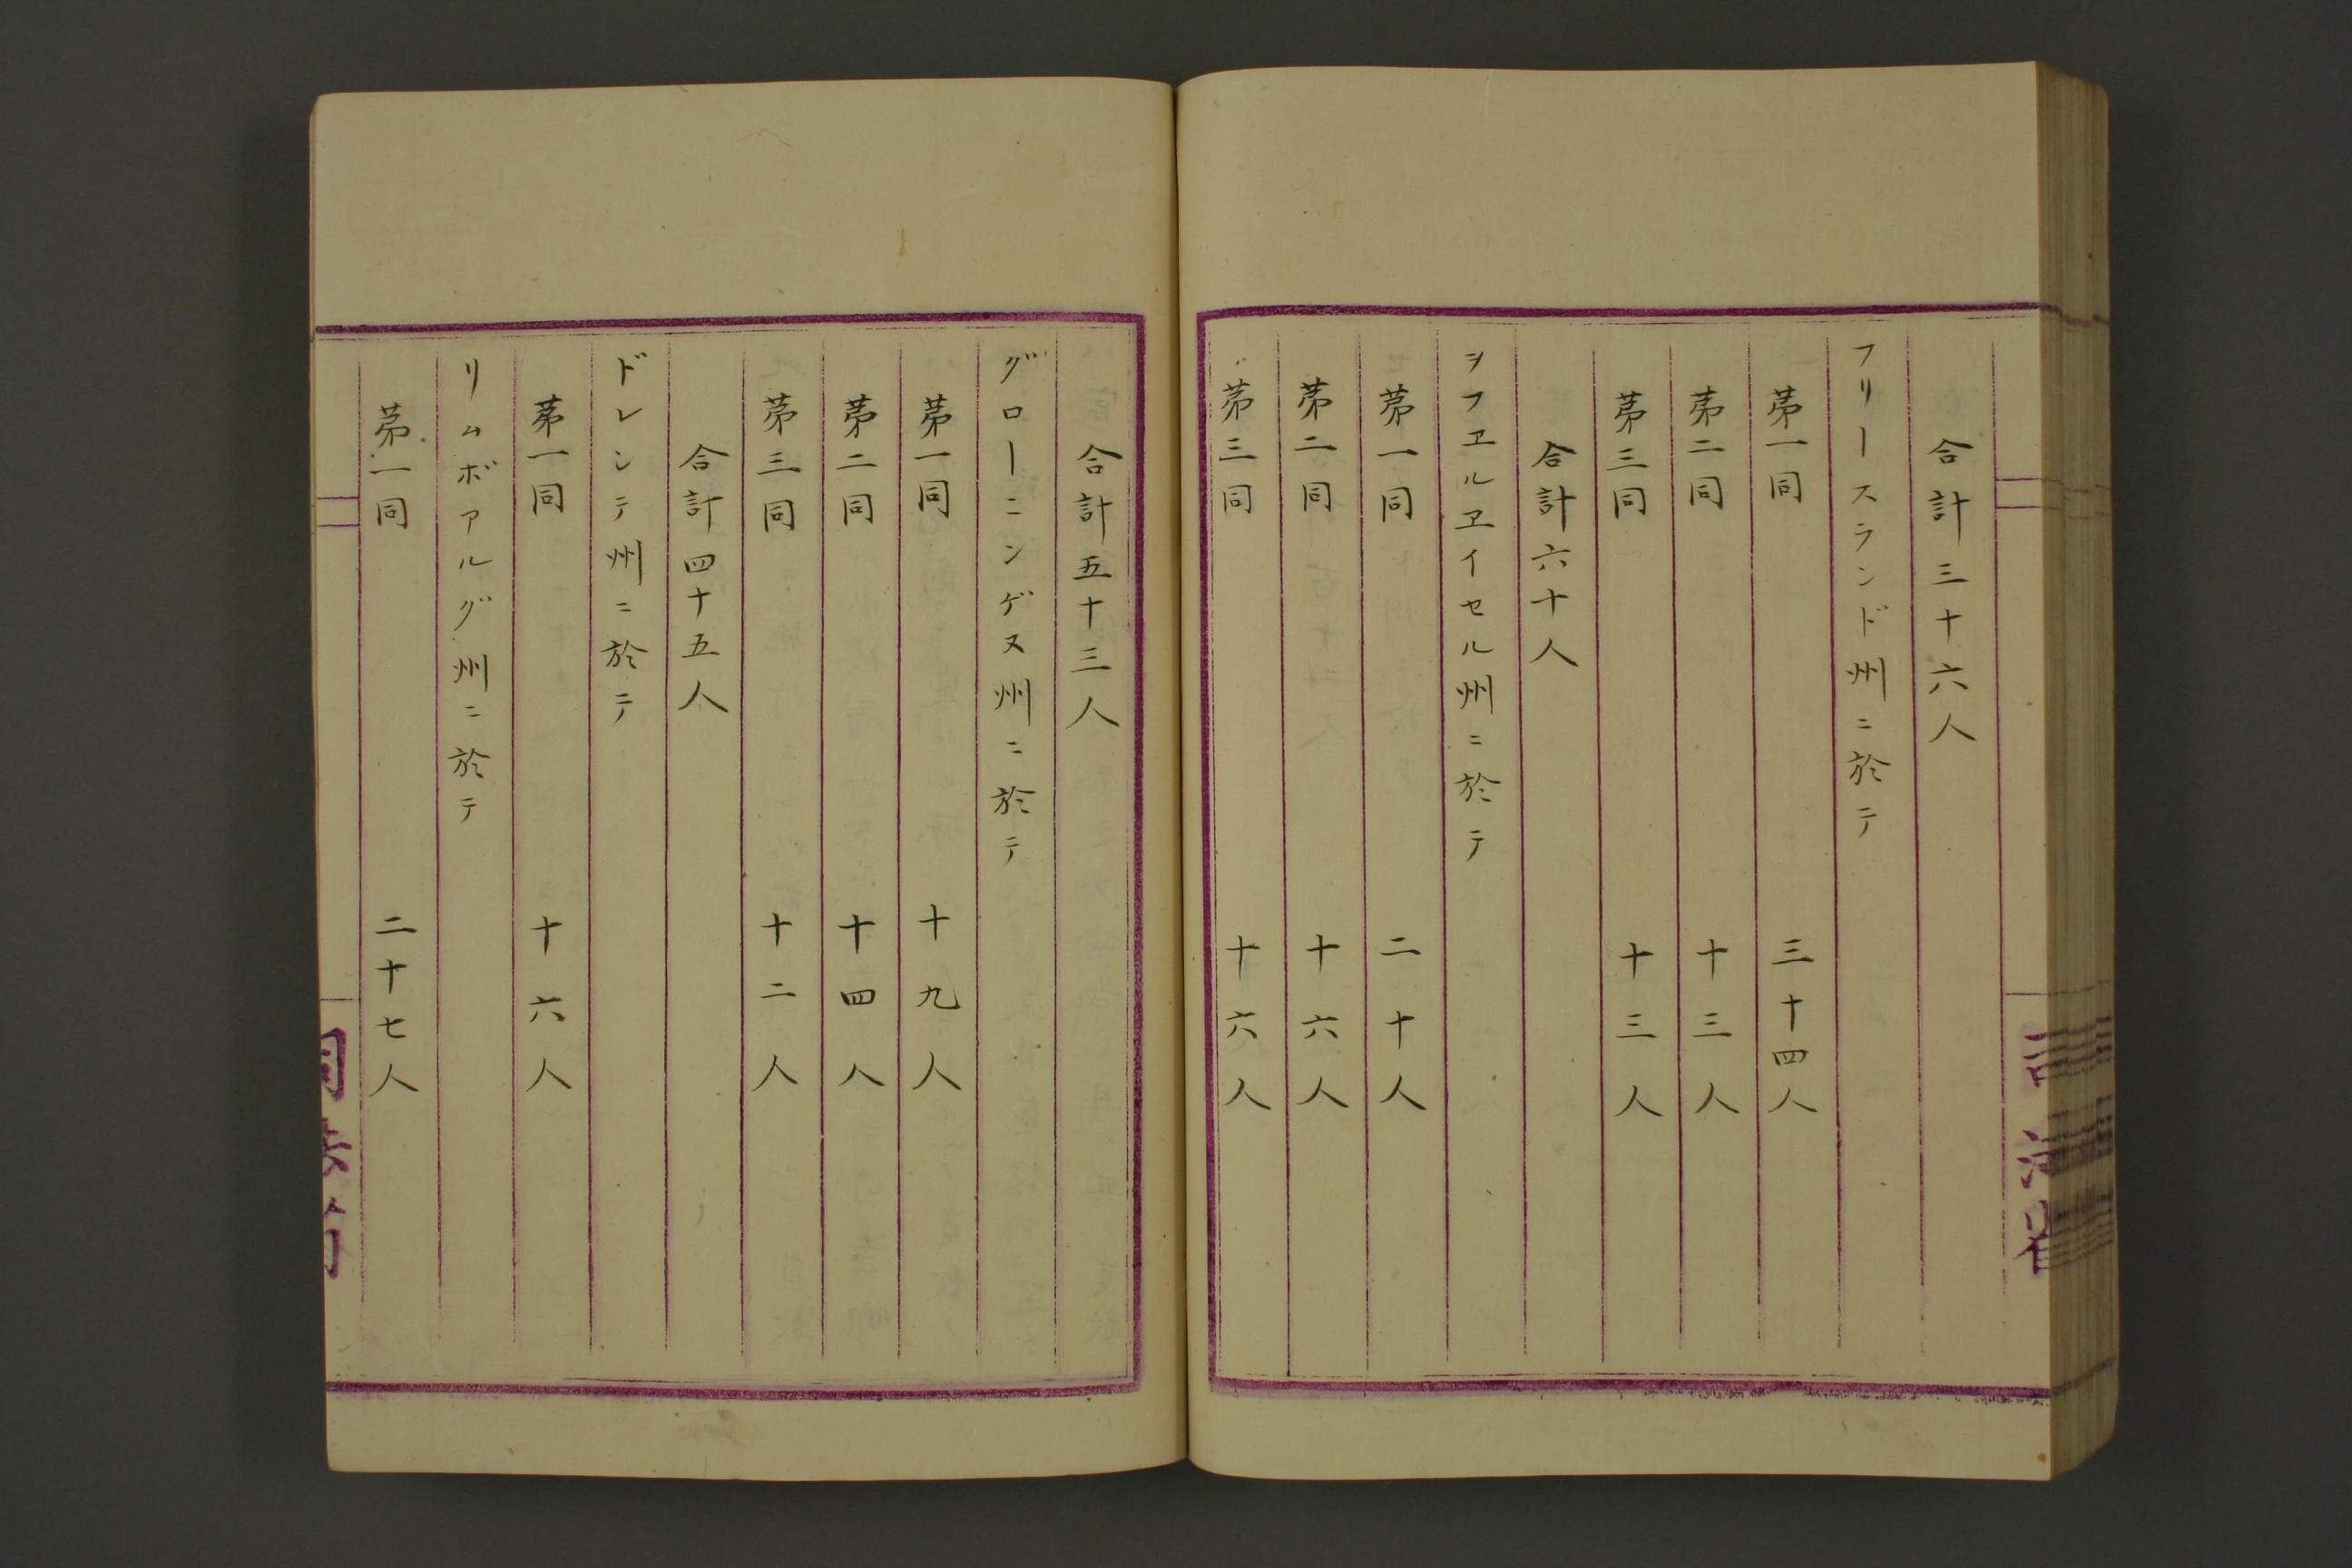 合計三十六人
フリースランド州ニ於テ
第一同 三十四人
第二同 十三人
第三同 十三人
合計六十人
ヲフヱルヱイセル州ニ於テ
第一同 二十人
第二同 十六人
第三同 十六人
合計五十三人
グローニンゲヌ州ニ於テ
第一同 十九人
第二同 十四人
第三同 十二人
合計四十五人
ドレンテ州ニ於テ
第一同 十六人
リムボアルグ州ニ於テ
第一同 二十七人